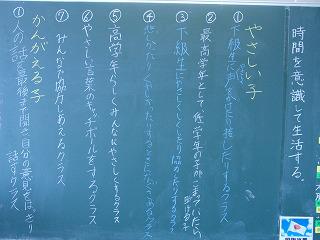 時間を意識して生活する。
やさしい子
①下級生に声をかけたり接したりするクラス
②最高学年として、低学年の手
③下級生にやさしくしたり協力したりするクラス
④
⑤高学年らしくみんなにやさしくするクラス
⑥やさしい言葉のキャッチボールをするクラス
⑦みんなで協力しあえるクラス
かんがえる子
①人の話を最後まで聞き、自分の意見をはっきり
話すクラス